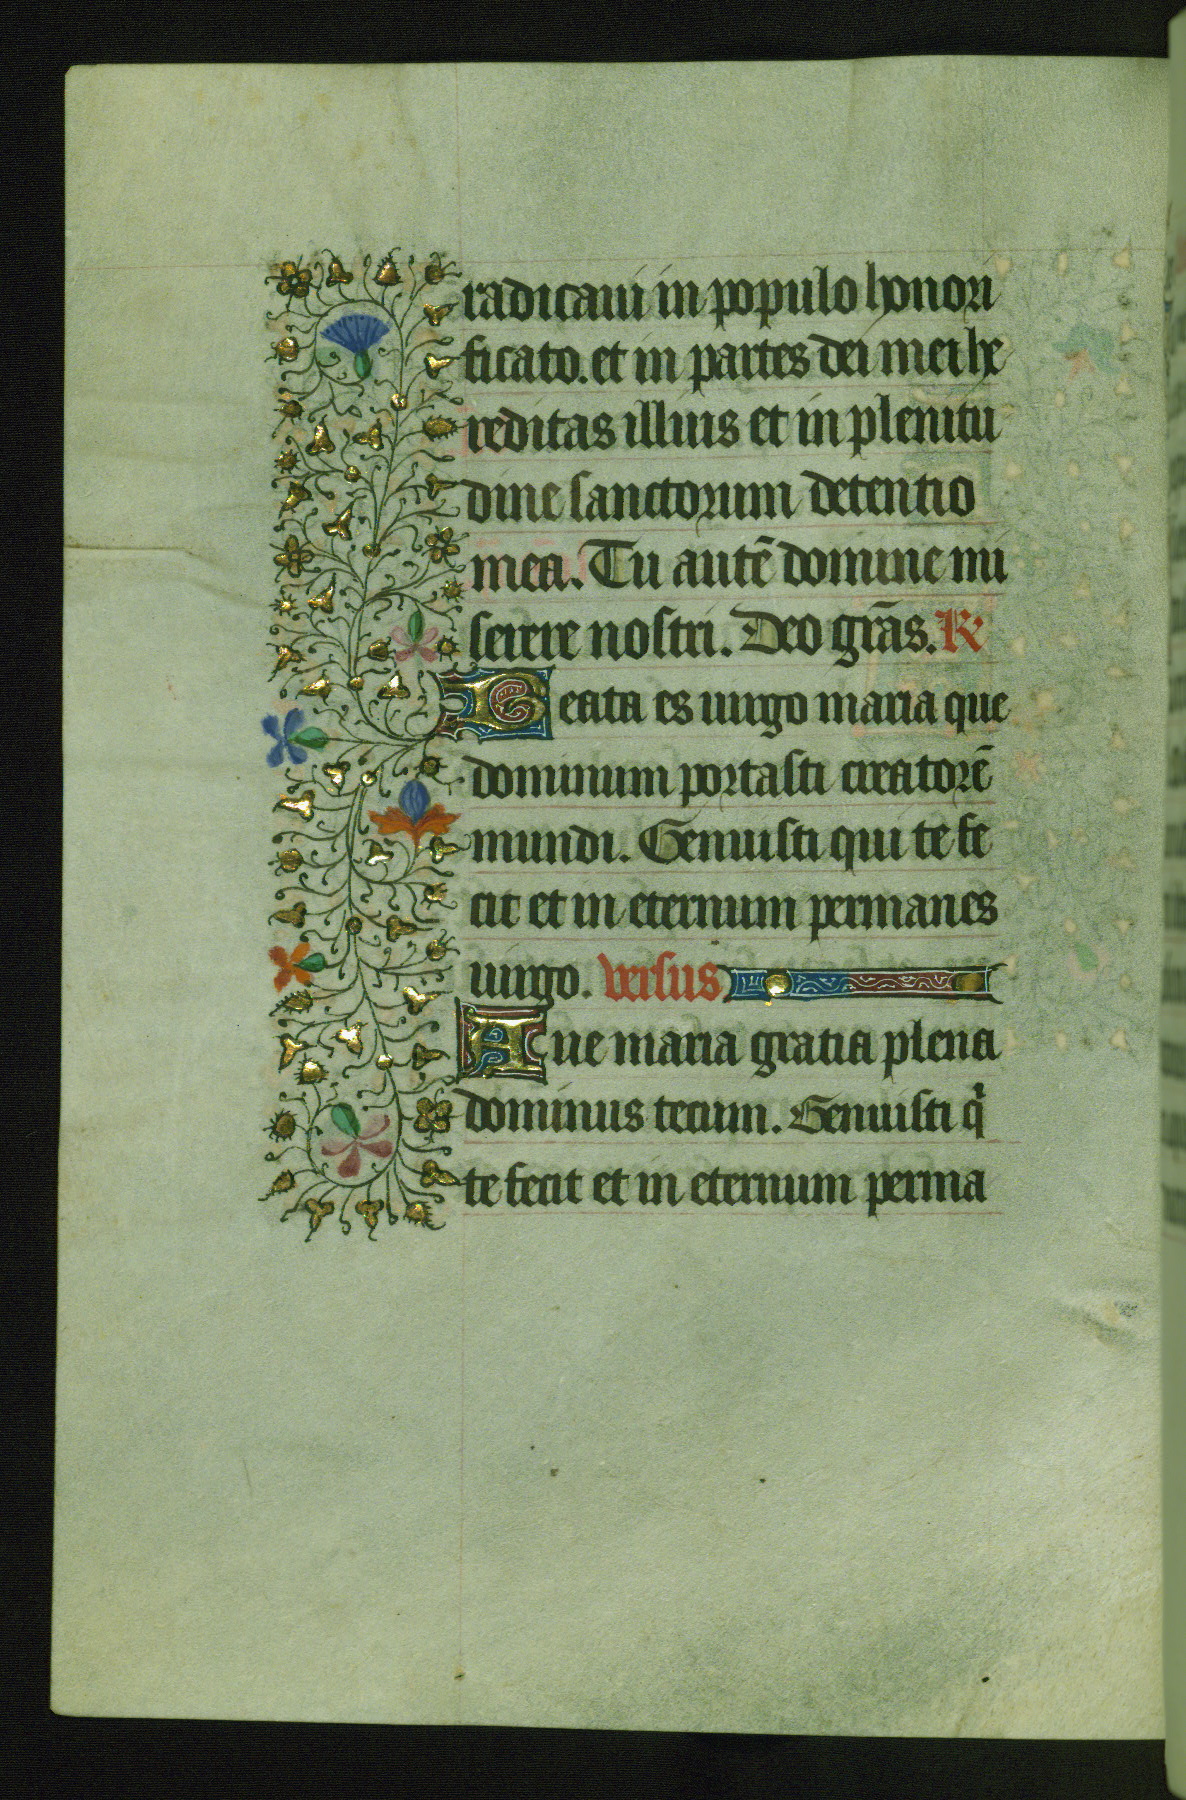 radicaui in populo honori
ficato. et in partes dei mei he
reditas illius et in plenitu
dine sanctorum detentio
mea. Tu autē domine mi
serere nostri. Deo grās. R
Beata es uirgo maria que
dominum portasti creatorē
mundi. Genuisti qui te fe
cit et in eternum permanes
uirgo. versus
Aue maria gratia plena
dominus tecum. Genuisti qi
te fecit et in eternum perma